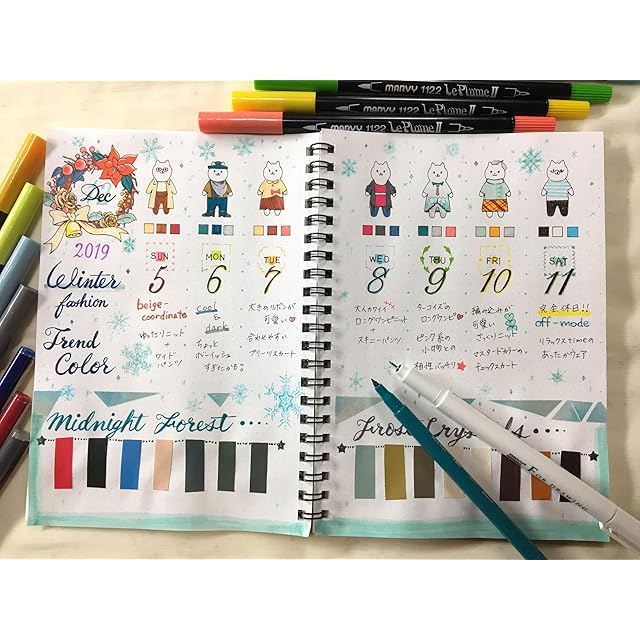 MARVY 1122 Le Plume II
MARVY 1122 Le Plume II
MARVY 1122 Le Plume II
Dec
2019
Winter
fashion
Trend
Color
SUN
5
beige-
coordinate
ゆったりニット
+
ワイド
パンツ
MON
6
cool
&
dark
ちょっと
ボーイッシュ
すぎたかも。
TUE
7
大きめリボンが
可愛い
合わせやすい
プリーツスカート
WED
8
大人のワイン
ロングワンピニット
+
スキニーパンツ
THU
9
ターコイズの
ロングワンピ
ピンク系の
小物との
相性バッチリ
FRI
10
編み込みが
可愛い
ざっくりニット
マスタードカラーの
チェックスカート
SAT
11
完全休日!!
off-mode
リラックスtimeの
あったかウェア
Midnight Forest ····
Frost Crystals ····